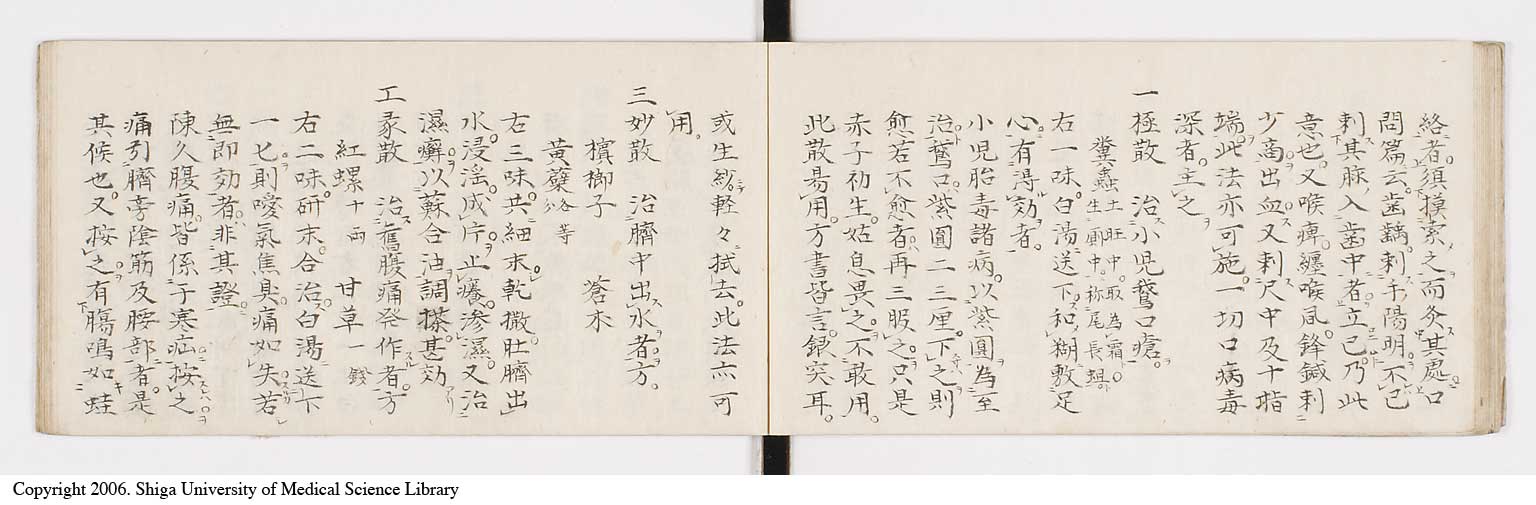 絡者。須摸索之而灸其處口
問篇云。齒齲。刺手陽明。不已
刺其脉入齒中者立已。乃此
意也。又喉痺。纏喉風。鋒鍼刺
少商出血。又刺尺中及十指
端。此法亦可施。一切口病毒
深者。主之
一極散 治小児鵞口瘡。
糞蟲 土旺中。取為霜。
生厠中。称尾長蛆
右一味。白湯送下。和糊敷足
心。有淂効者。
小児胎毒諸病。以紫圓為至
治。鵞口。紫圓二三厘。下之則
愈。若不愈者。再三服之。只是
赤子初生。姑息畏之。不敢用。
此散易用。方書皆言。銀突耳。
或生紗。軽々拭去。此法亦可
用。
三妙散 治臍中出水者方。
檳榔子 蒼朮
黄蘗 各等分
右三味。共細末。乾撒肚臍出
水。浸滛成片。止癢滲濕。又治
濕癬。以蘇合油調搽甚効
工豖散 治舊腹痛発作者方
紅螺 十両 甘草 一錢
右二味。研末。合治。白湯送下
一匕。則噯氣焦臭。痛如失。若
無即効者。非其證
陳久腹痛。皆係于寒疝。按之
痛引臍旁陰筋及腰部者。是
其候也。又按之有膓鳴如蛙